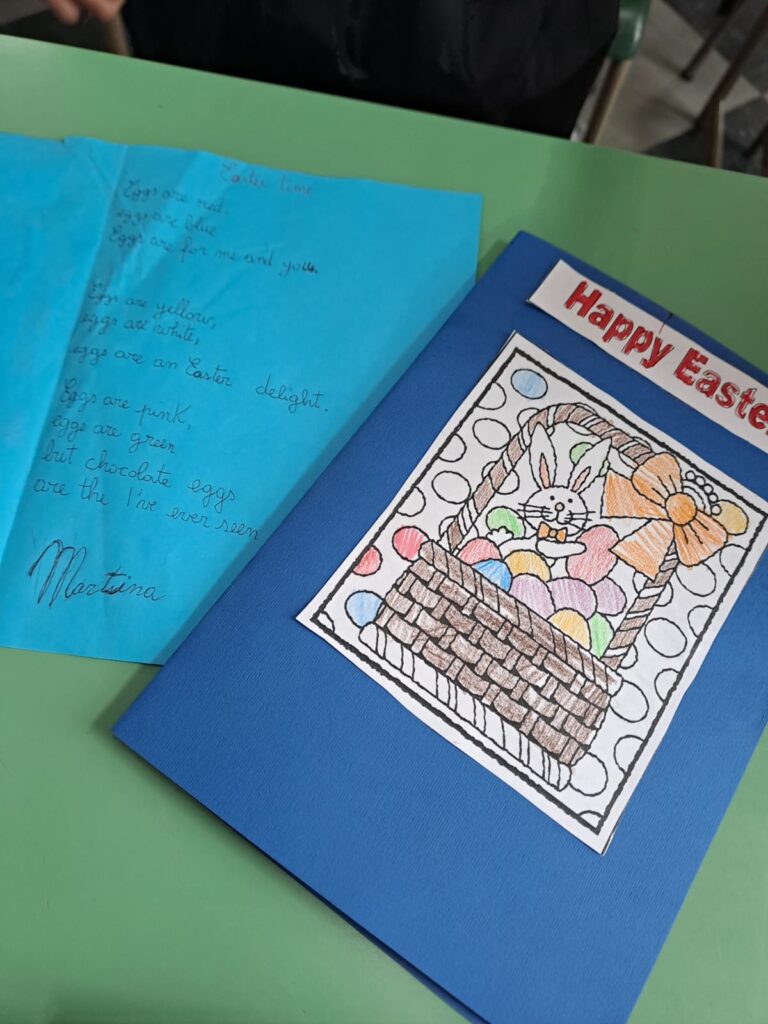 Easter time
Eggs are red,
eggs are blue
Eggs are for me and you.
Eggs are yellow,
eggs are white,
eggs are an Easter delight.
Eggs are pink,
eggs are green
but chocolate eggs
are the I've ever seen
Martina
Happy Easte